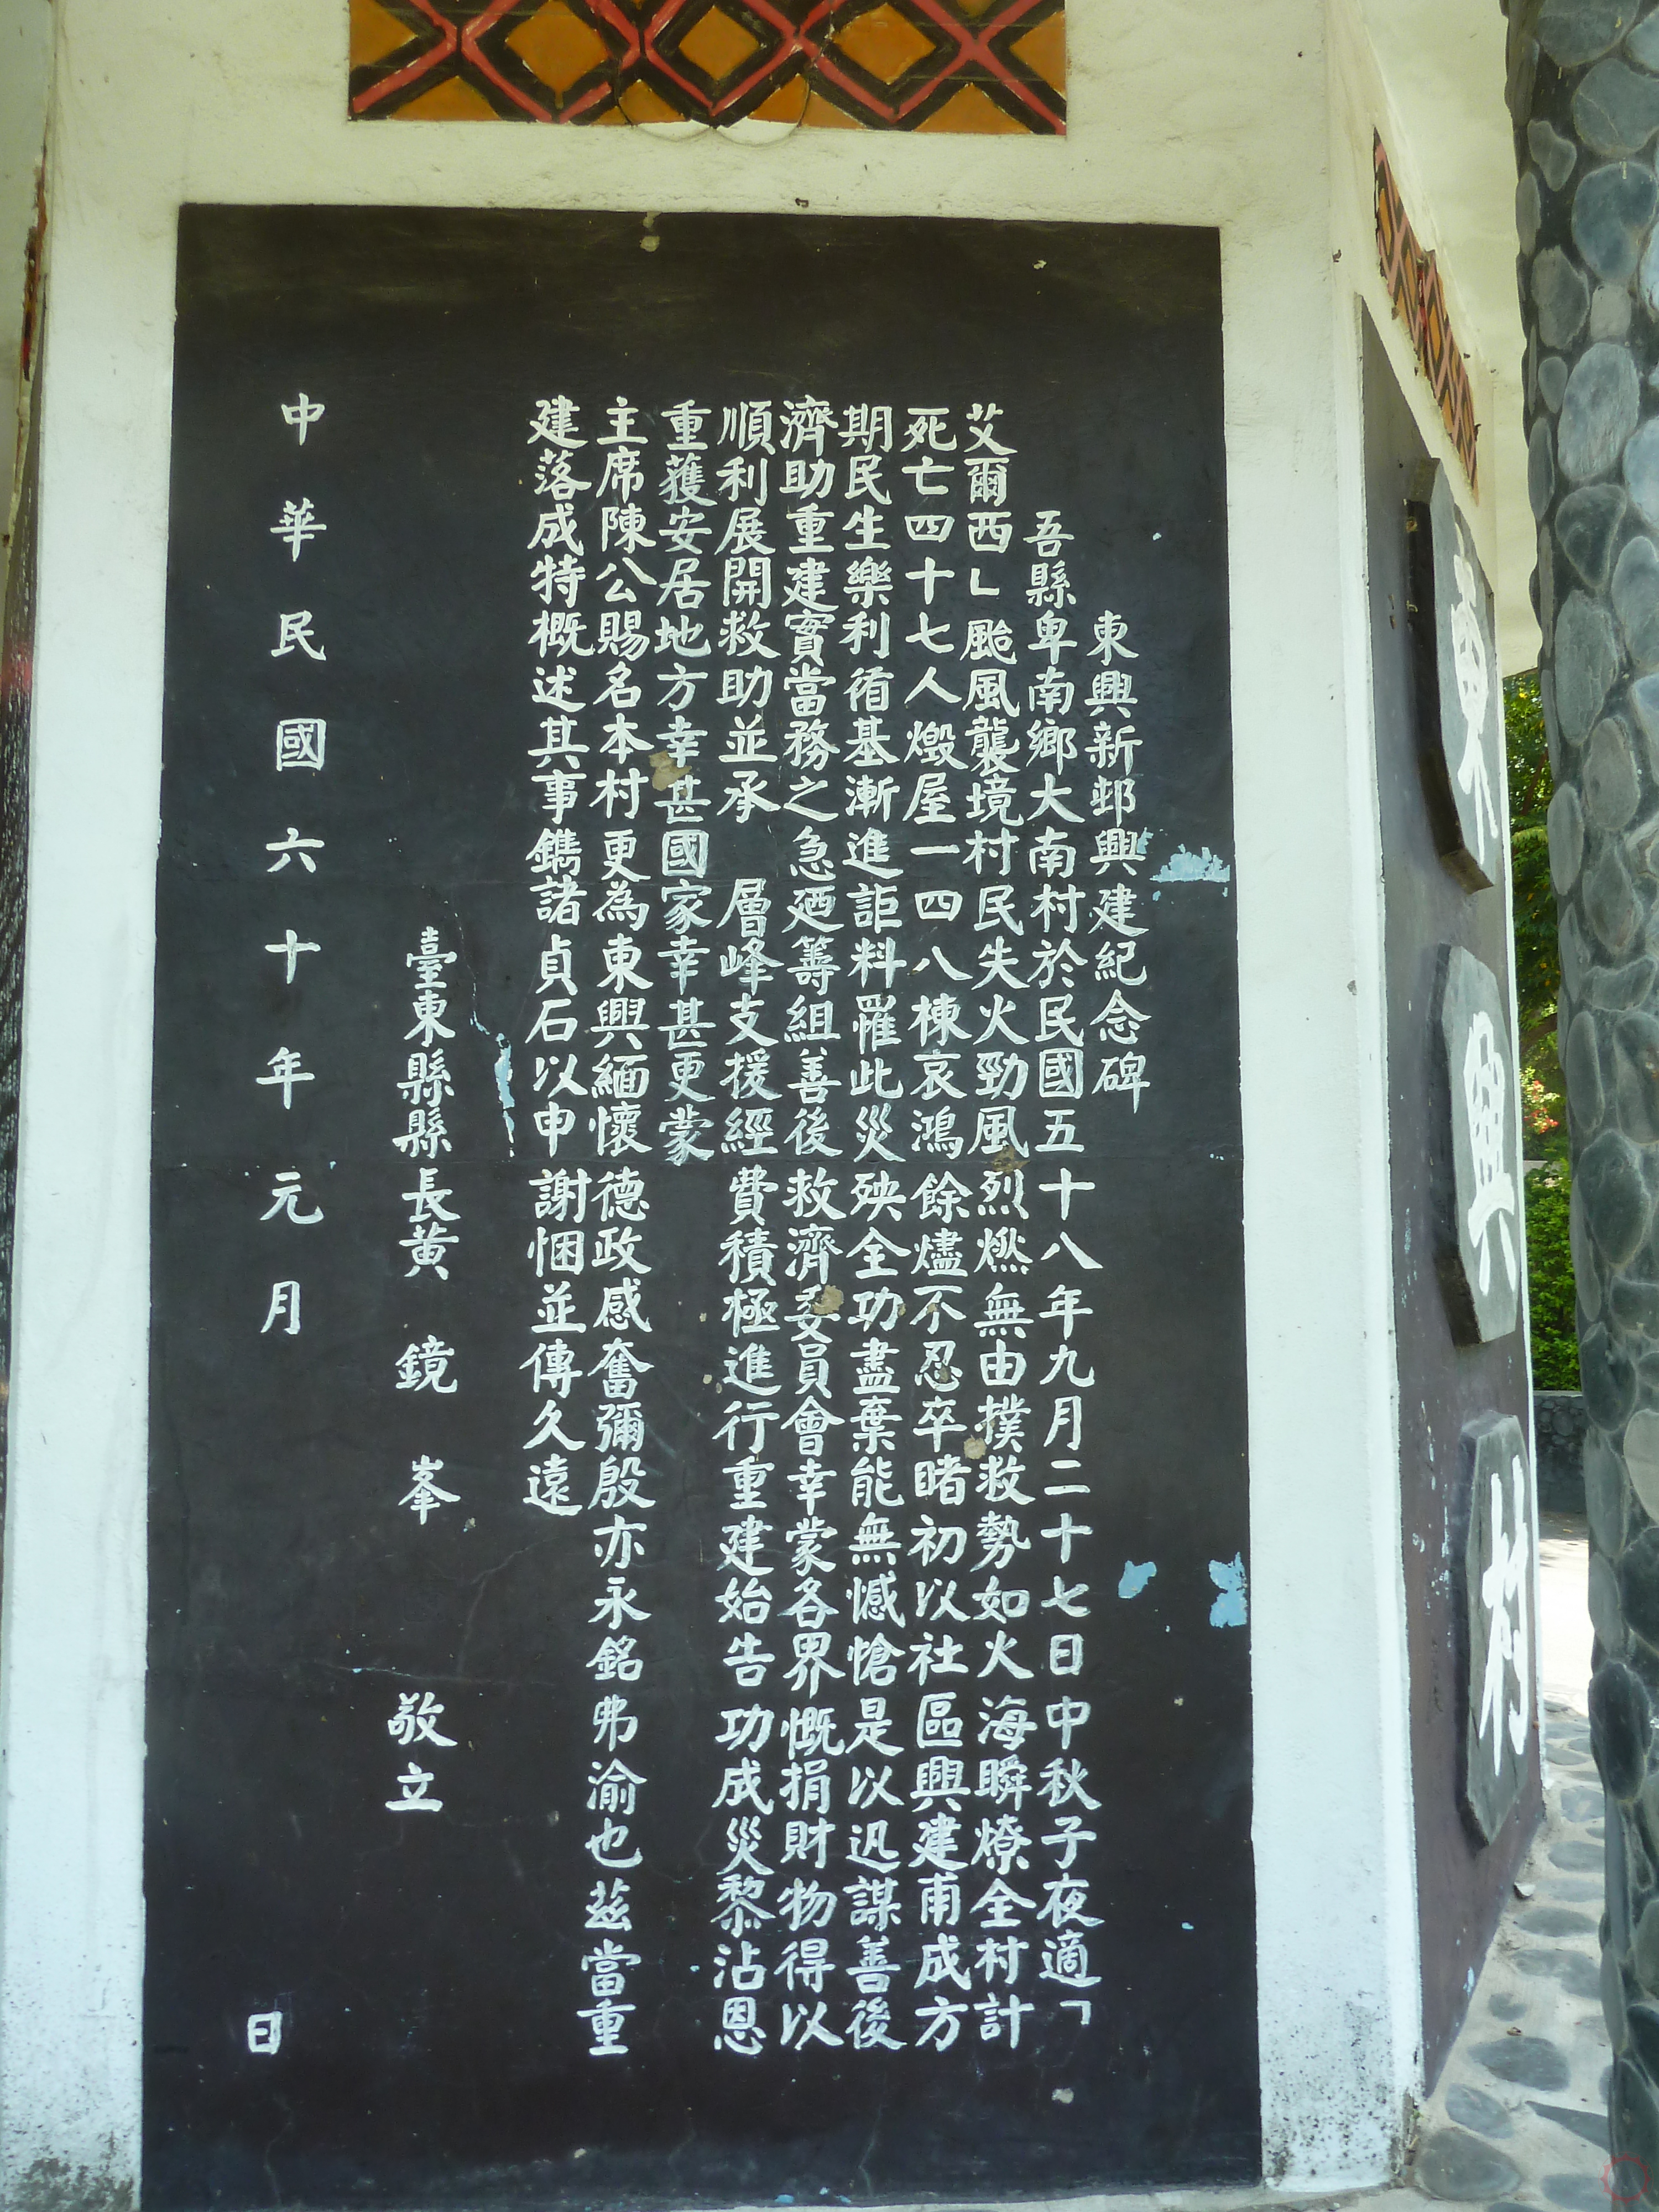 東興新邨興建紀念碑
吾縣卑南鄉大南村於民國五十八年九月二十七日中秋子夜適「
艾爾西」颱風襲境村民失火火勁風烈燃無由撲救勢如火海瞬燎全村計
死亡四十七人燬屋一四八棟哀鴻餘燼不忍卒睹初以社區興建甫成方
期民生樂利循基漸進詎料罹此災殃全功盡棄能無憾愴是以迅謀善後
濟助重建實當務之急廼籌組善後救濟委員會幸蒙各界慨捐財物得以
順利展開救助並承 層峰支援經費積極進行重建始告功成災黎沾恩
重獲安居地方幸甚國家幸甚更蒙
主席陳公賜名本村更為東興緬懷德政感奮彌殷亦永銘弗渝也茲當重
建落成特概述其事鐫諸貞石以申謝悃並傳久遠
臺東縣縣長黃 鏡 峯 敬立
中華民國六十年元月 日
東興村